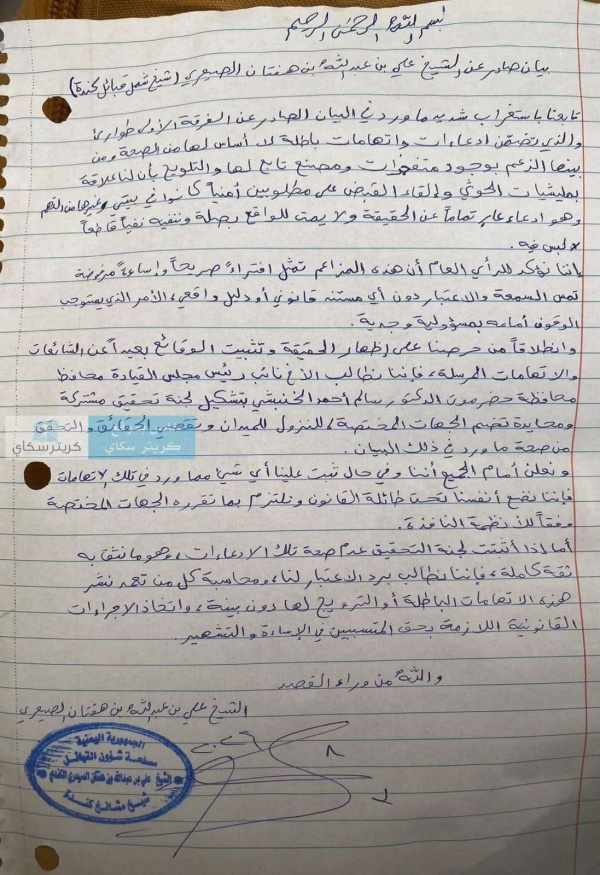 بسم الله الرحمن الرحيم
بيان صادر عن الشيخ علي بن عبدالله بن هفتان الصيعري (شيخ شمل قبائل كندة)
تابعنا باستغراب شديد ما ورد في البيان الصادر عن الفرقة الأولى طوارئ،
والذي تضمن ادعاءات واتهامات باطلة لا أساس لها من الصحة ومن
بينها الزعم بوجود متفجرات ومصنع تابع لها والتلويح بأن لنا علاقة
بمليشيات الحوثي وإلقاء القبض على مطلوبين أمنياً كانوا في بيتي وغيرها من التهم
وهو ادعاء عارٍ تماماً عن الحقيقة ولا يمت للواقع بصلة وننفيه نفياً قاطعاً
لا لبس فيه.
إننا نؤكد للرأي العام أن هذه المزاعم تمثل افتراءً صريحاً وإساءة مرفوضة
تمس السمعة والاعتبار دون أي مستند قانوني أو دليل واقعي، الأمر الذي يستوجب
الوقوف أمامه بمسؤولية وجدية.
وانطلاقاً من حرصنا على إظهار الحقيقة وتثبيت الوقائع بعيداً عن الشائعات
والاتهامات المرسلة، فإننا نطالب الأخ نائب رئيس مجلس القيادة محافظ
محافظة حضرموت الدكتور سالم أحمد الخنبشي بتشكيل لجنة تحقيق مشتركة
ومحايدة تضم الجهات المختصة، للنزول للميدان وتقصي الحقائق والتحقق
من صحة ما ورد في ذلك البيان.
ونعلن أمام الجميع أننا وفي حال ثبت علينا أي شيء مما ورد في تلك الاتهامات
فإننا نضع أنفسنا تحت طائلة القانون ونلتزم بما تقرره الجهات المختصة
وفقاً للأنظمة النافذة.
أما إذا أثبتت لجنة التحقيق عدم صحة تلك الادعاءات، وهو ما نثق به
ثقة كاملة، فإننا نطالب برد الاعتبار لنا، ومحاسبة كل من تعمد نشر
هذه الاتهامات الباطلة أو الترويج لها دون بينة، واتخاذ الإجراءات
القانونية اللازمة بحق المتسببين في الإساءة والتشهير.
والله من وراء القصد
الشيخ علي بن عبدالله بن هفتان الصيعري
٨
٢
٢٠٢٦
الجمهورية اليمنية
مصلحة شؤون القبائل
الشيخ علي بن عبدالله بن هفتان الصيعري الكندي
شيخ مشائخ كندة
كريتر سكاي
كريتر سكاي